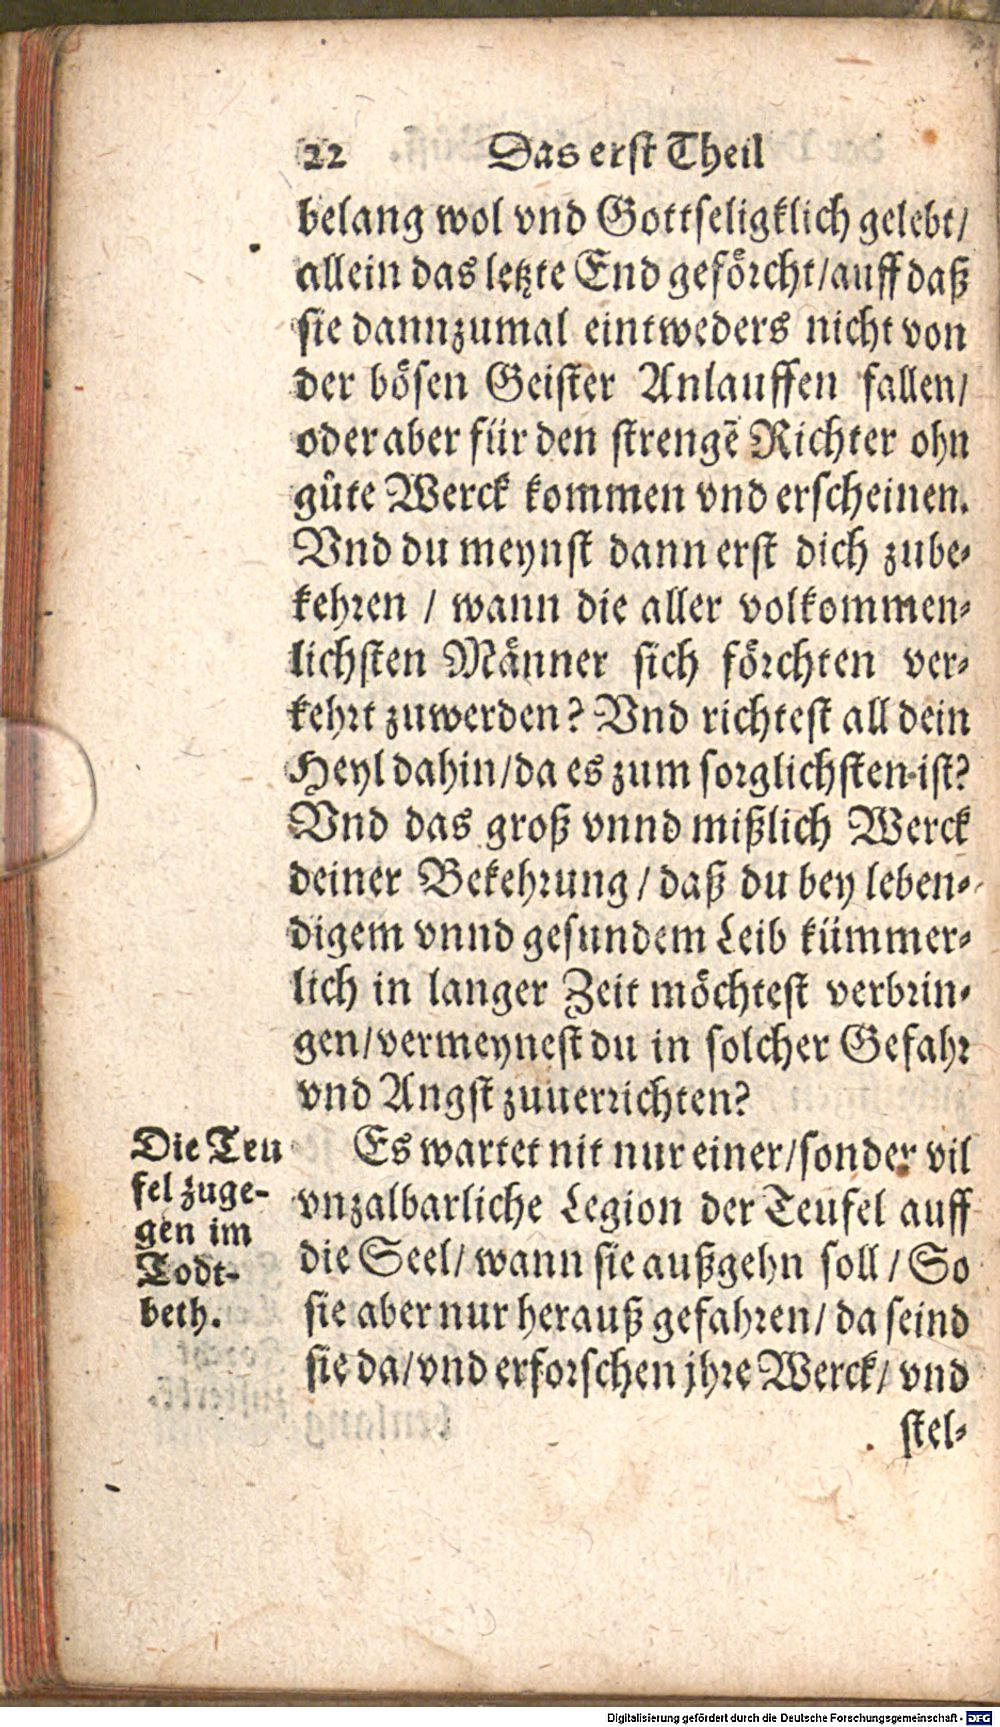 22 Das erst Theil
belang wol vnd Gottseligklich gelebt/
allein das letzte End geförcht/auff daß
sie dannzumal eintweders nicht von
der bösen Geister Anlauffen fallen/
oder aber für den strengẽ Richter ohn
gůte Werck kommen vnd erscheinen.
Vnd du meynst dann erst dich zube-
kehren / wann die aller volkommen-
lichsten Männer sich förchten ver-
kehrt zuwerden? Vnd richtest all dein
Heyl dahin/da es zum sorglichsten ist?
Vnd das groß vnnd mißlich Werck
deiner Bekehrung/daß du bey leben-
digem vnnd gesundem Leib kümmer-
lich in langer Zeit möchtest verbrin-
gen/vermeynest du in solcher Gefahr
vnd Angst zuuerrichten?
Die Teu
fel zuge-
gen im
Todt-
beth.
Es wartet nit nur einer/sonder vil
vnzalbarliche Legion der Teufel auff
die Seel/ wann sie außgehn soll / So
sie aber nur herauß gefahren/ da seind
sie da/vnd erforschen jhre Werck/ vnd
stel-
Digitalisierung gefördert durch die Deutsche Forschungsgemeinschaft - DFG